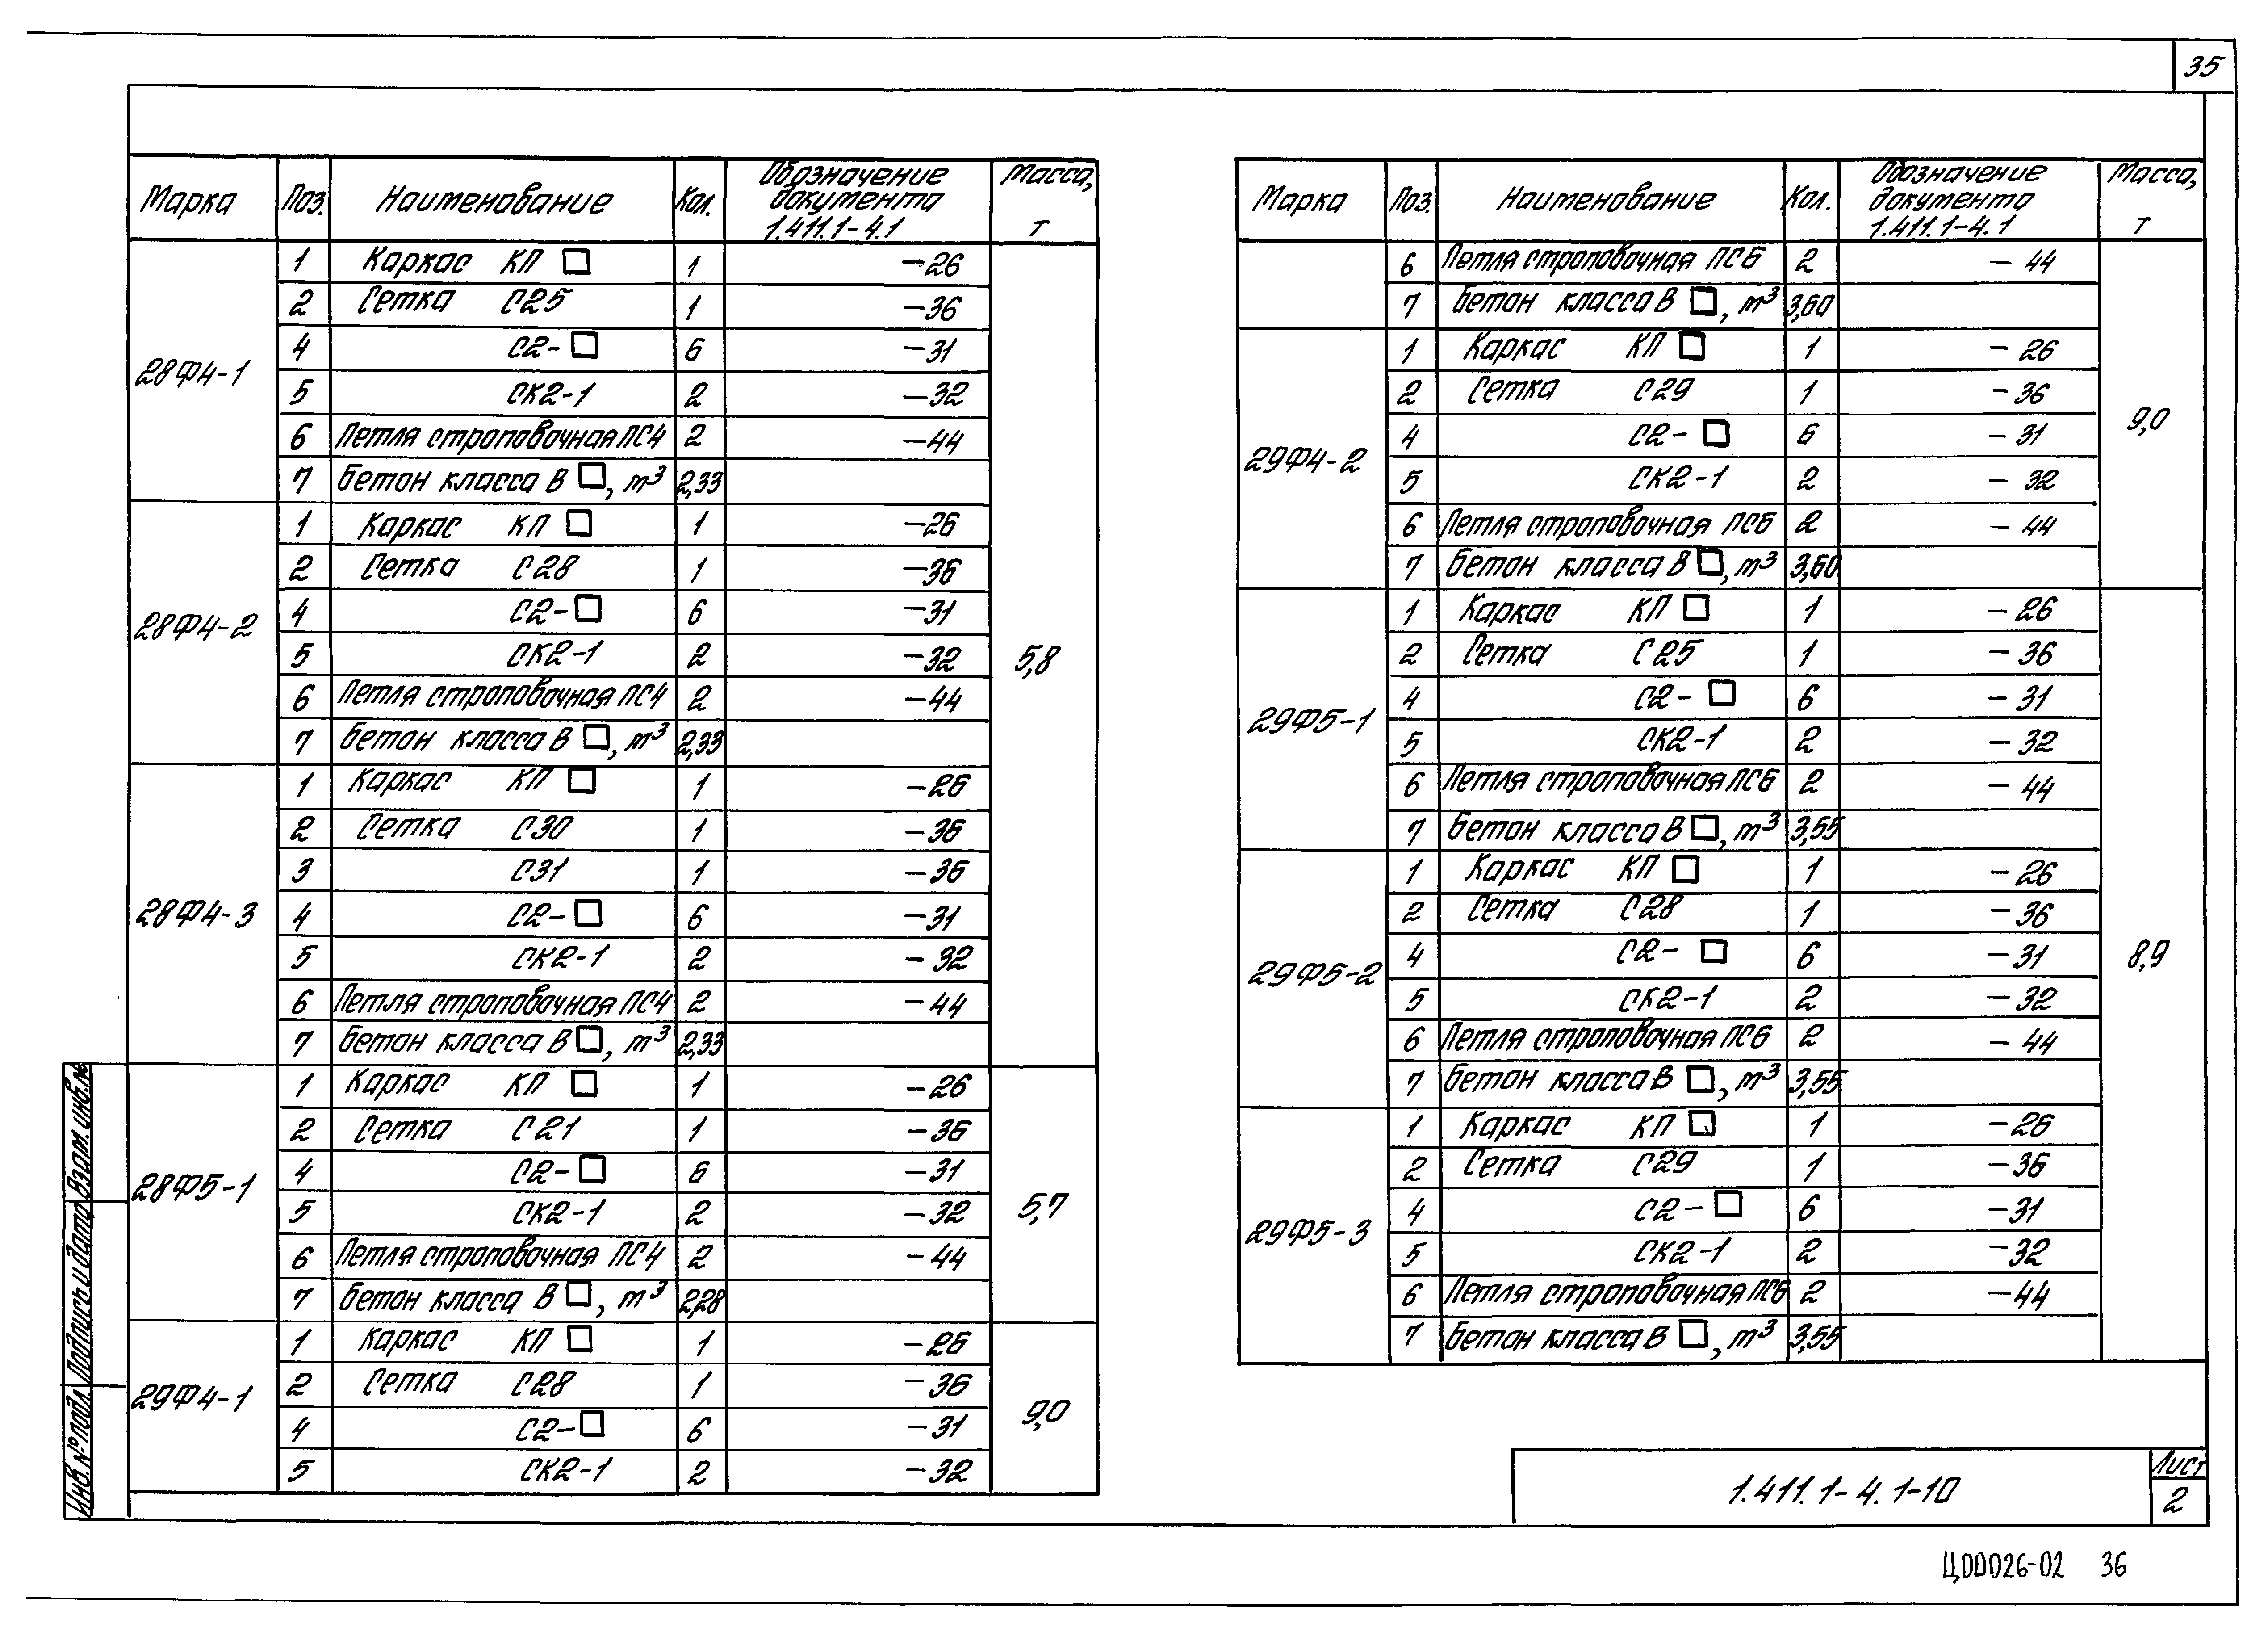 35
Марка Поз. Наименование Кол. Обозначение документа 1.411.1-4.1 Масса, т
28Ф4-1
1 Каркас КП □ 1 -26
2 Сетка С25 1 -36
4 С2-□ 6 -31
5 СК2-1 2 -32
6 Петля строповочная ПС4 2 -44
7 Бетон класса В □, м³ 2,33
28Ф4-2
1 Каркас КП □ 1 -26
2 Сетка С28 1 -36
4 С2-□ 6 -31
5 СК2-1 2 -32
5,8
6 Петля строповочная ПС4 2 -44
7 Бетон класса В □, м³ 2,33
28Ф4-3
1 Каркас КП □ 1 -26
2 Сетка С30 1 -36
3 С31 1 -36
4 С2-□ 6 -31
5 СК2-1 2 -32
6 Петля строповочная ПС4 2 -44
7 Бетон класса В □, м³ 2,33
28Ф5-1
1 Каркас КП □ 1 -26
2 Сетка С21 1 -36
4 С2-□ 6 -31
5 СК2-1 2 -32
5,7
6 Петля строповочная ПС4 2 -44
7 Бетон класса В □, м³ 2,28
29Ф4-1
1 Каркас КП □ 1 -26
2 Сетка С28 1 -36
9,0
4 С2-□ 6 -31
5 СК2-1 2 -32
Марка Поз. Наименование Кол. Обозначение документа 1.411.1-4.1 Масса, т
6 Петля строповочная ПС6 2 -44
7 Бетон класса В □, м³ 3,60
29Ф4-2
1 Каркас КП □ 1 -26
2 Сетка С29 1 -36
9,0
4 С2-□ 6 -31
5 СК2-1 2 -32
6 Петля строповочная ПС6 2 -44
7 Бетон класса В □, м³ 3,60
29Ф5-1
1 Каркас КП □ 1 -26
2 Сетка С25 1 -36
4 С2-□ 6 -31
5 СК2-1 2 -32
6 Петля строповочная ПС6 2 -44
7 Бетон класса В □, м³ 3,55
29Ф5-2
1 Каркас КП □ 1 -26
2 Сетка С28 1 -36
4 С2-□ 6 -31
8,9
5 СК2-1 2 -32
6 Петля строповочная ПС6 2 -44
7 Бетон класса В □, м³ 3,55
29Ф5-3
1 Каркас КП □ 1 -26
2 Сетка С29 1 -36
4 С2-□ 6 -31
5 СК2-1 2 -32
6 Петля строповочная ПС6 2 -44
7 Бетон класса В □, м³ 3,55
Инв. № подл. Подпись и дата Взам. инв. №
1.411.1-4.1-10
Лист
2
Ц00026-02 36